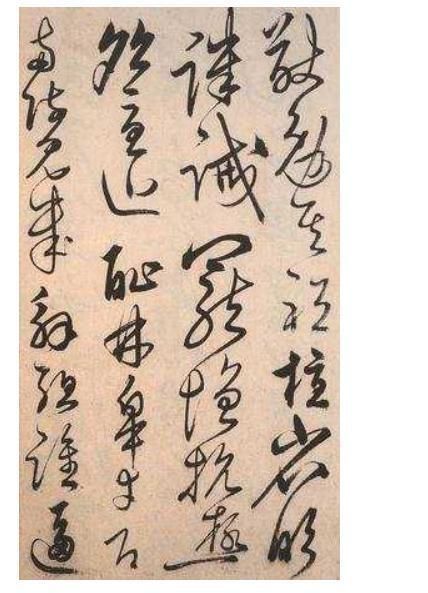 猷勉其祗植省躬
譏誡寵增抗極
殆辱近耻林皋幸即
兩疏見機解組誰逼